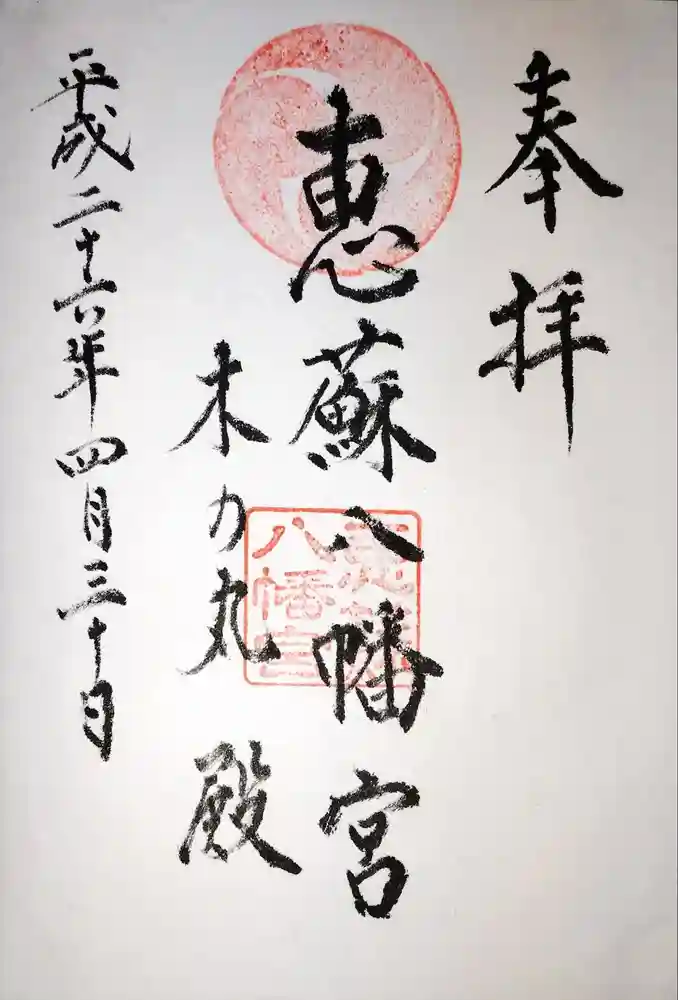 奉拝
恵蘇八幡宮
木の丸殿
平成二十六年四月三十日
恵蘇
八幡宮